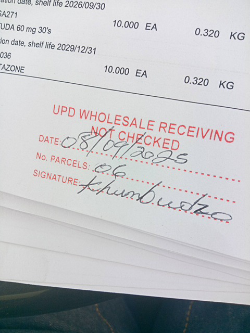 ation date, shelf life 2026/09/30
GA271
10.000 EA 0.320 KG
UDA 60 mg 30's
tion date, shelf life 2029/12/31
036
10.000 EA 0.320 KG
TAZONE
UPD WHOLESALE RECEIVING
NOT CHECKED
DATE: 08/09/2025
No. PARCELS: 06
SIGNATURE: Khumbudzo